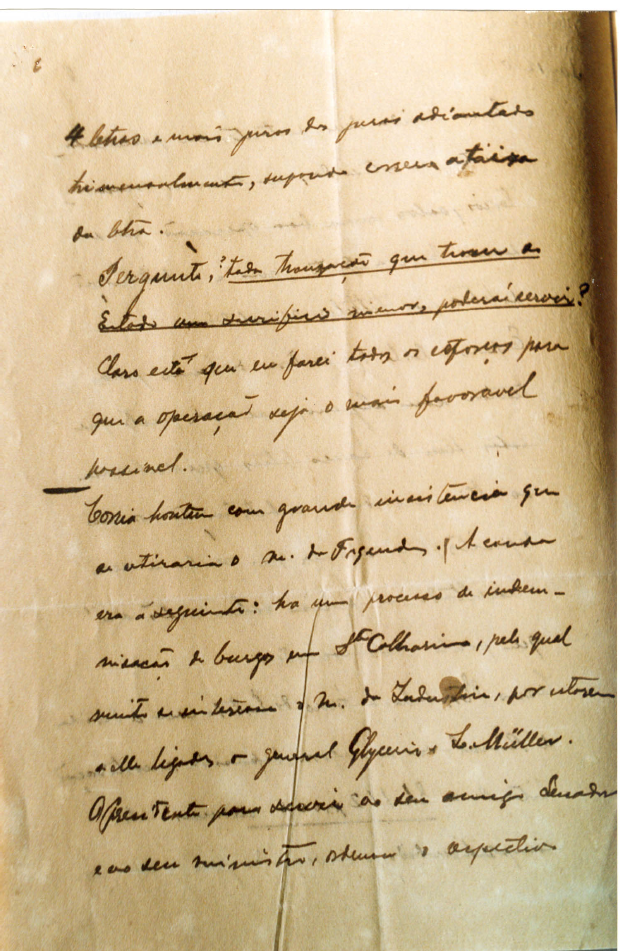 4 letras e mais juros dos juros adiantado
trimensalmente, suponda essera a taixa
da letra.
Pergunto, toda transação que trouxer ao
Estado um sacrificio menor, poderá servir?
Claro está que eu farei todos os esforços para
que a operação seja o mais favoravel
possivel.
Corria hontem com grande insistencia que
se retiraria o m. da Fazenda. A causa
era a seguinte: ha um processo de indem-
nisação de burgos em Sta Catharina, pelo qual
muito se interessa o M. da Industria, por estarem
a elle ligados o general Glycerio e L. Müller.
O Presidente para servir ao seu amigo Senador
e ao seu ministro, ordenou o respectivo